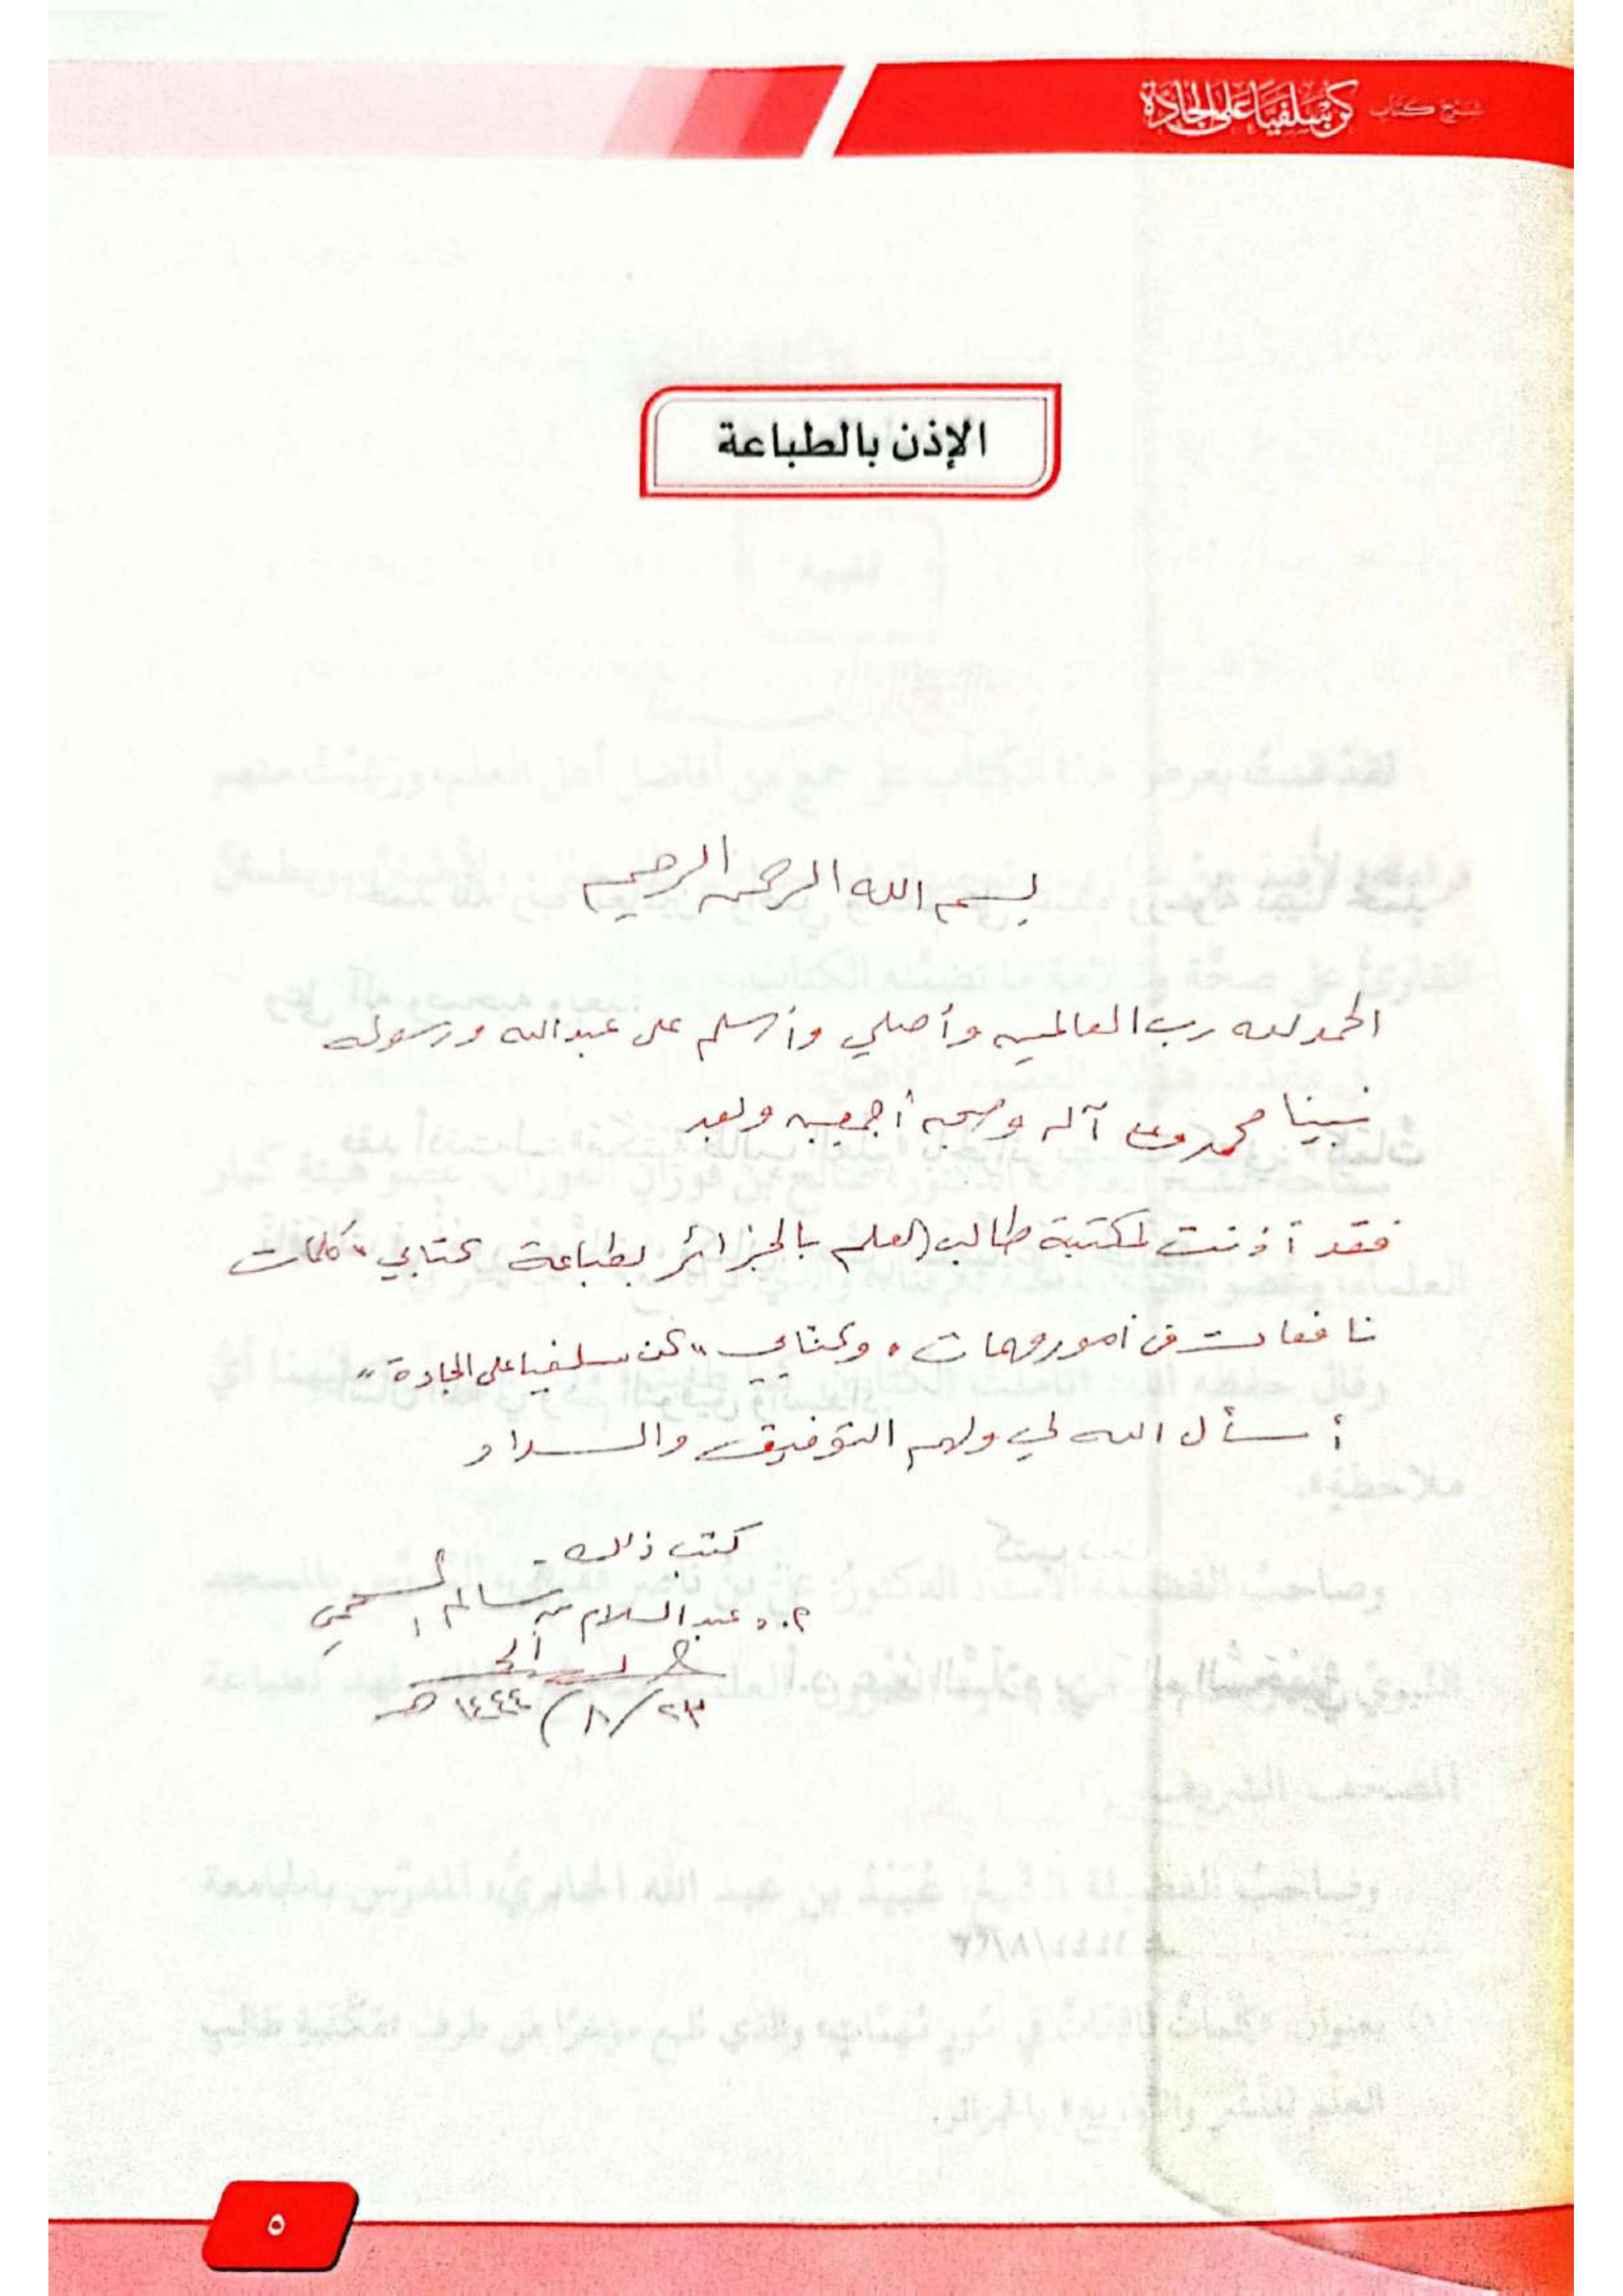 شرح كتاب كن سلفيا على الجادة
الإذن بالطباعة
بسم الله الرحمن الرحيم
الحمد لله رب العالمين وأصلي وأسلم على عبد الله ورسوله
نبينا محمد وعلى آله وصحبه أجمعين وبعد
فقد أذنت لمكتبة طالب العلم بالجزائر بطباعة كتابي "كلمات
نافعات في أمور مهمات" وكتابي "كن سلفيا على الجادة"
أسأل الله لي ولهم التوفيق والسداد
كتب ذلك
أ.د عبد السلام بن سالم السحيمي
٢٣/٨/١٤٤٤ هـ
٥